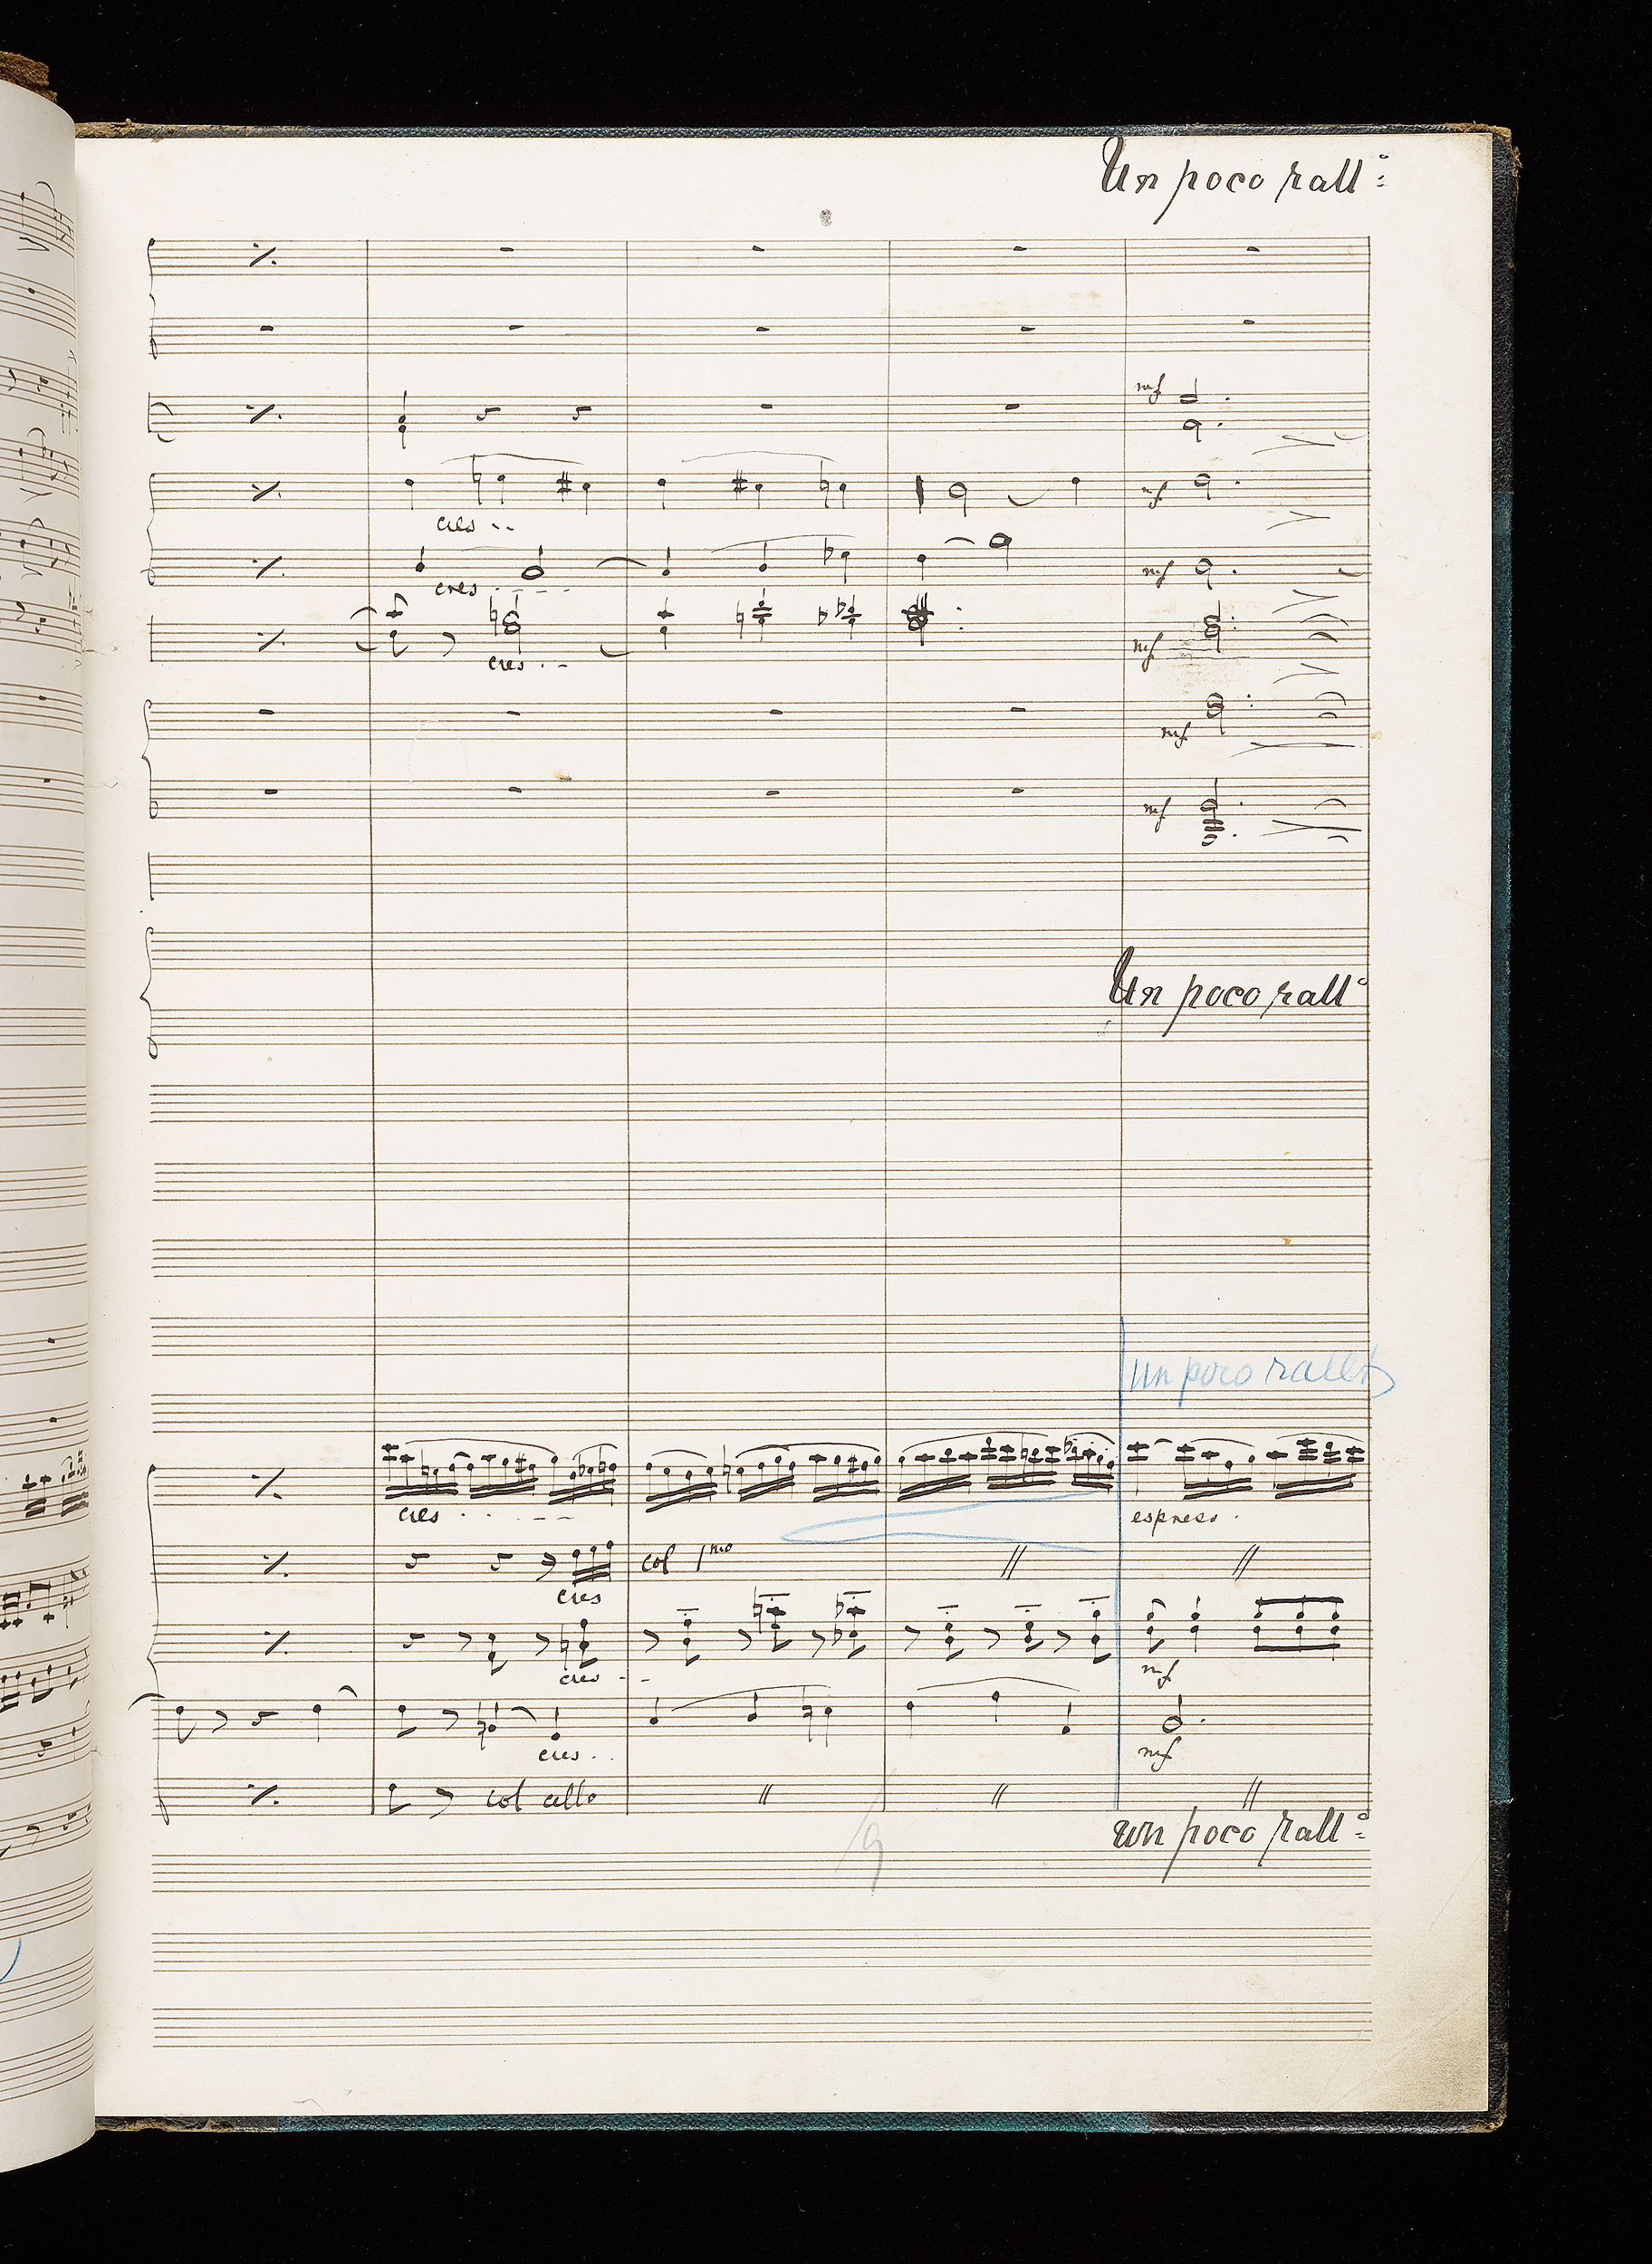 Un poco rall:
mf
mf
cres
mf
cres
mf
cres
mf
mf
Un poco rall:
un poco rall
cres
espress.
col 1mo
cres
cres
mf
cres
mf
col cello
9
un poco rall: